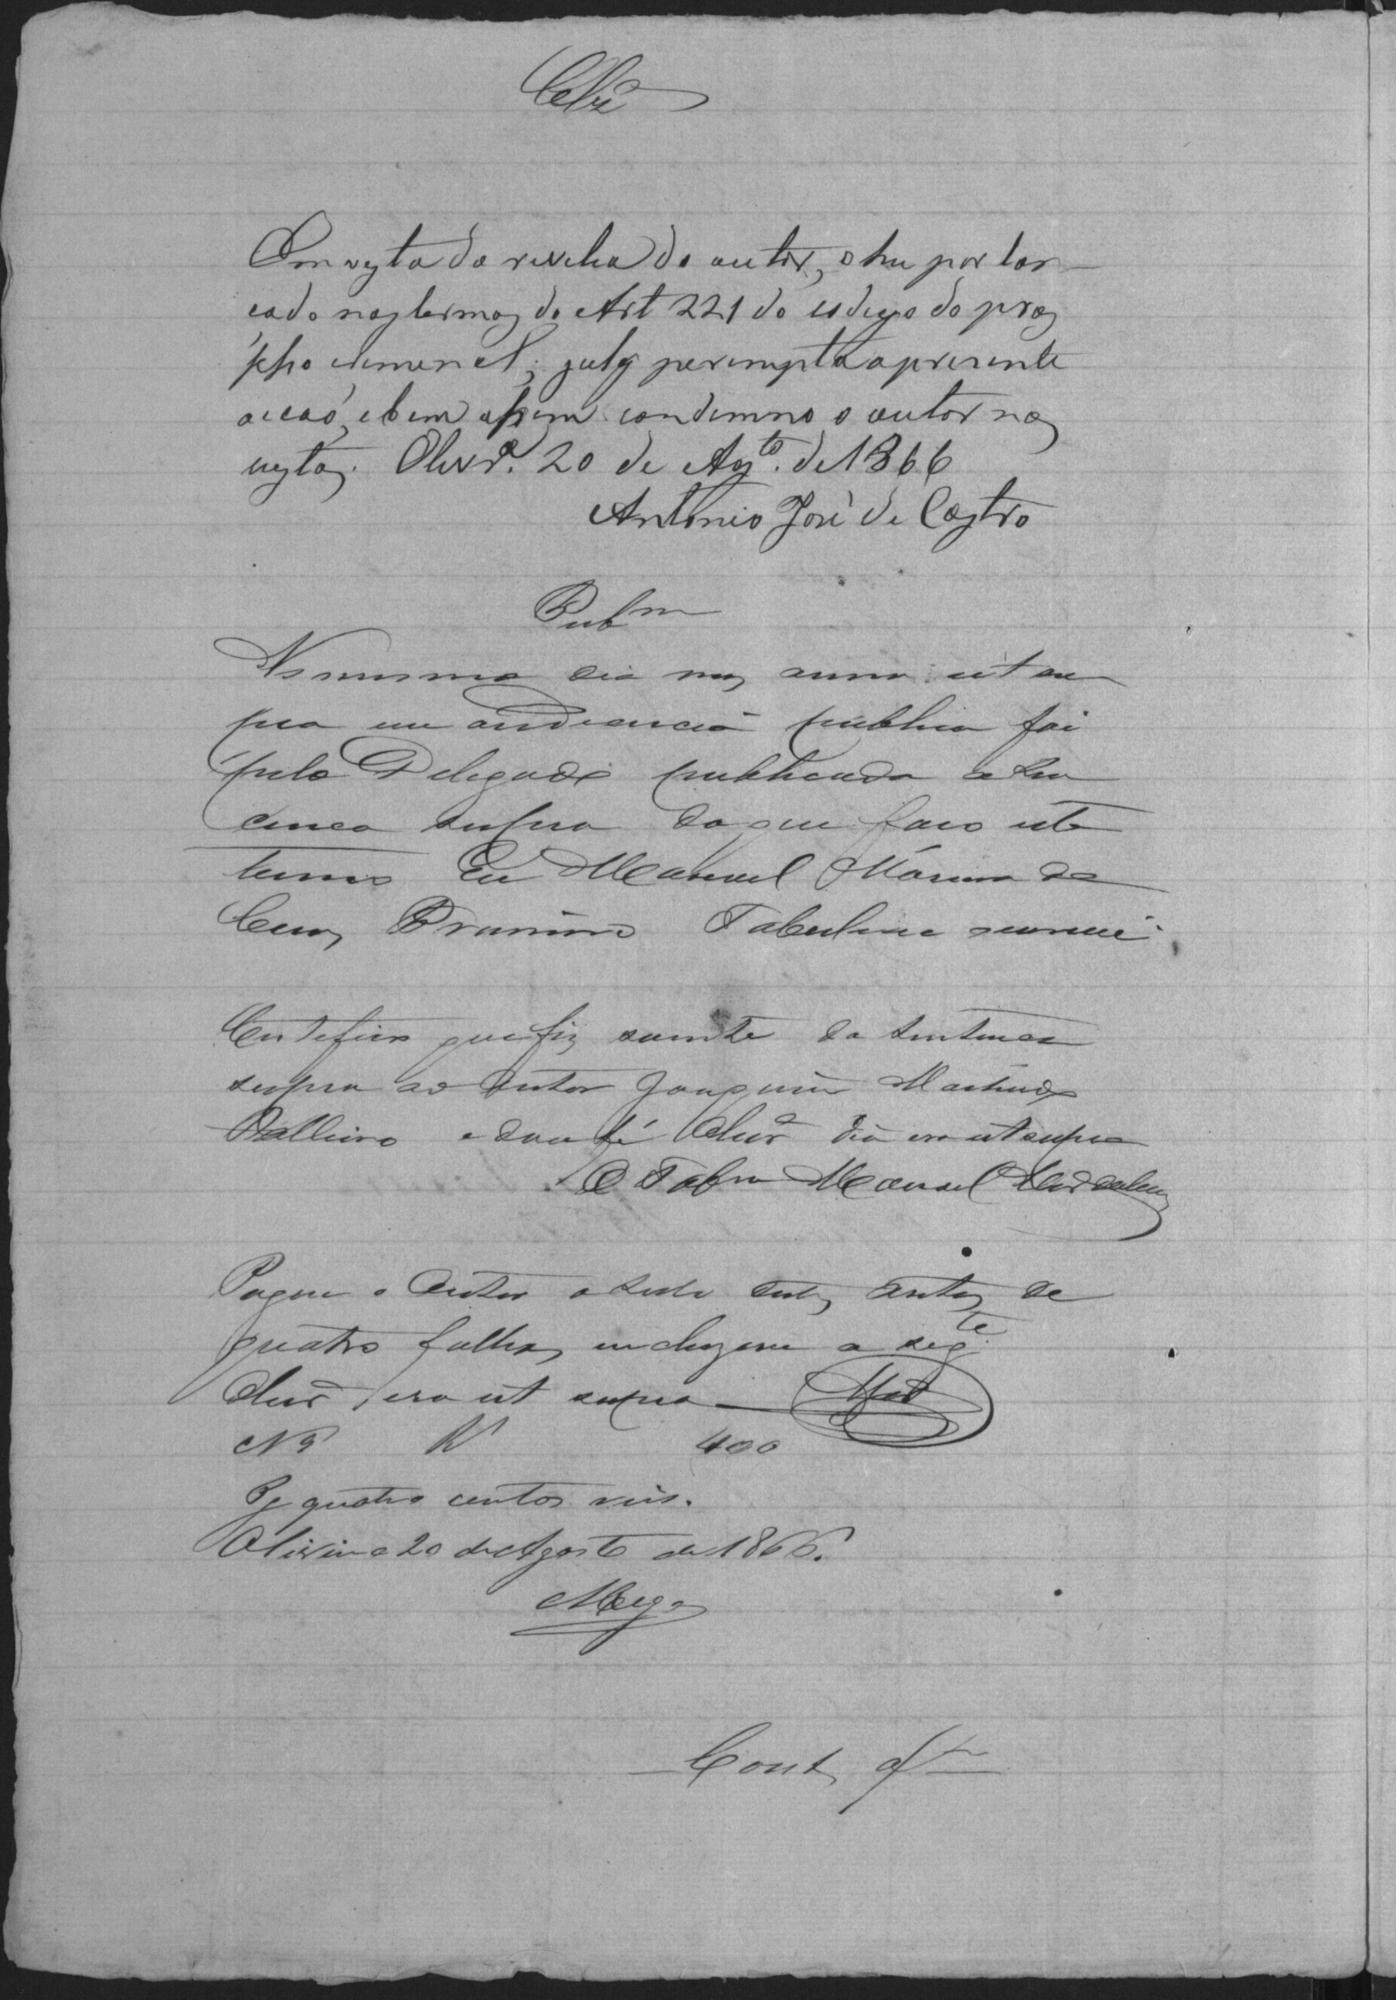 Clz.
Em vysta da revelia do autor, o hei por lan-
cado nos termos do Art 221 do codigo do pros
psso criminal, julg perempta a presente
accaõ, e bem assim condemno o autor nas
custas. Olivrª. 20 de Agto. de 1866
Antonio José de Castro
Pubm
No mesmo dia mes anno ut su
pra em audiencia publica foi
pelo Delegado publicada a sen
tença supra do que faço este
termo Eu Manoel
Tabeliam escrevi
Certefico que fiz sciente da sentença
supra ao Autor Joaquim Machado
e dou fé Olivrª dia era ut supra
O Tabam Manoel
Pague o Autor o sello destes autos de
quatro folhas incluzive a segte
Olivrª, era ut supra
Nº 400
Pg quatro centos reis.
Oliveira 20 de Agosto de 1866.